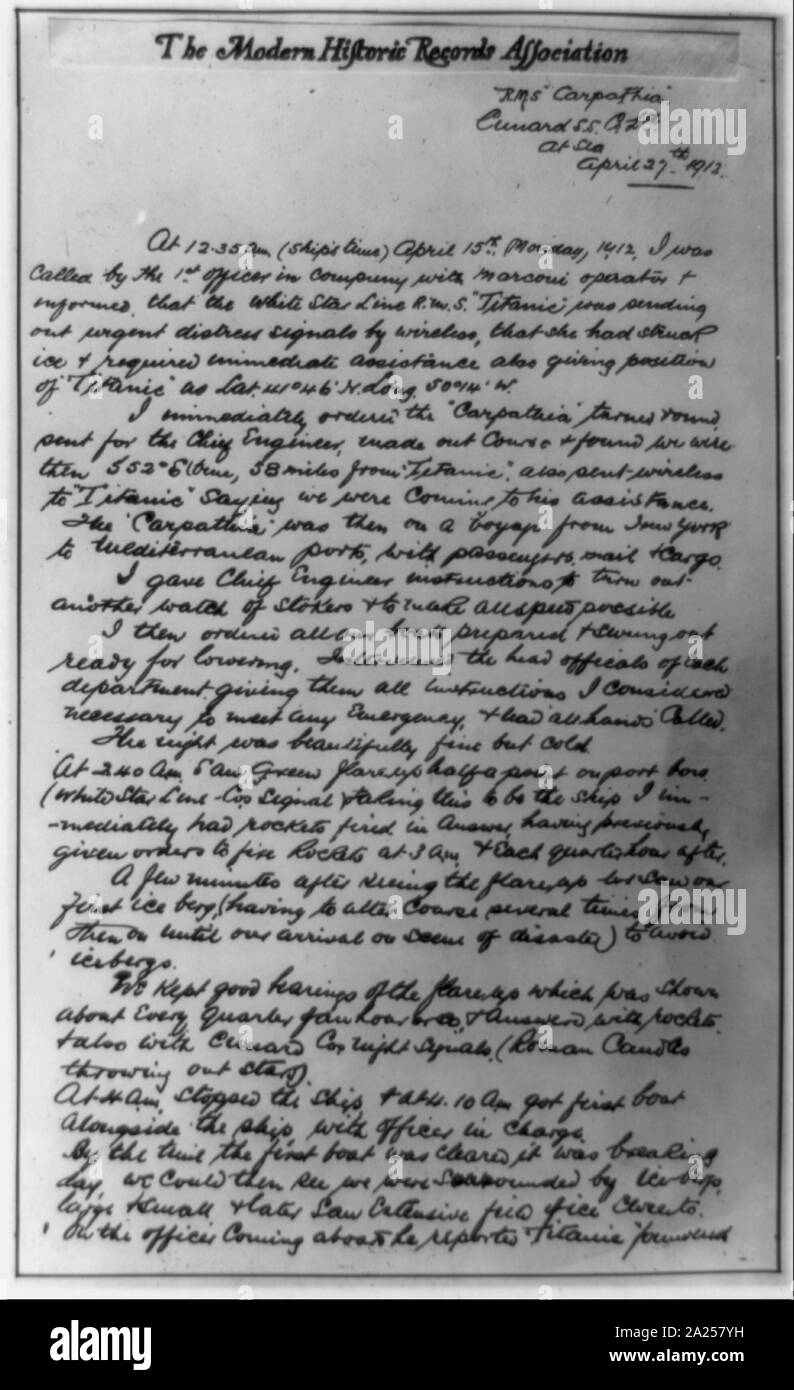 The Modern Historic Records Association
RMS "Carpathia"
Cunard S.S. Co. Ltd.
At Sea
April 27th 1912.
At 12.35 am (ship's time) April 15th, Monday, 1912, I was
called by the 1st officer in company with Marconi operator &
informed that the White Star Line R.M.S. "Titanic" was sending
out urgent distress signals by wireless, that she had struck
ice & required immediate assistance also giving position
of "Titanic" as Lat. 41°46' N. Long. 50°14' W.
I immediately ordered the "Carpathia" turned round,
sent for the Chief Engineer, made out Course & found we were
then S 52° E (true, 58 miles from "Titanic". also sent wireless
to "Titanic" saying we were coming to his assistance.
The "Carpathia" was then on a voyage from New York
to Mediterranean ports, with passengers, mail & cargo.
I gave Chief Engineer instructions to turn out
another watch of stokers & to make all speed possible
I then ordered all our boats prepared & swung out
ready for lowering. the head officials of each
department giving them all instructions I considered
necessary to meet any Emergency, & had "all hands" called.
The night was beautifully fine but cold
At 2.40 Am saw Green flareup half a point on port bow
(White Star Line Cos Signal) & taking this to be the ship I im-
-mediately had rockets fired in answer, having previously
given orders to fire Rockets at 3 Am, & Each quarter hour after.
A few minutes after seeing the flareup we saw our
first ice berg, (having to alter Course several times from
then on until our arrival on scene of disaster) to avoid
icebergs.
We kept good bearings of the flareup which was shown
about Every quarter of an hour & answered with rockets,
& also with Cunard Cos night signals, (Roman Candles
throwing out stars).
At 4 Am. stopped the ship, & at 4.10 Am got first boat
alongside the ship with officer in charge.
By the time the first boat was cleared it was breaking
day, we could then see we were surrounded by icebergs,
large & small & later saw Extensive field of ice
On the officer coming aboard he reported "Titanic" foundered
alamy
Image ID: 2A257YH
www.alamy.com